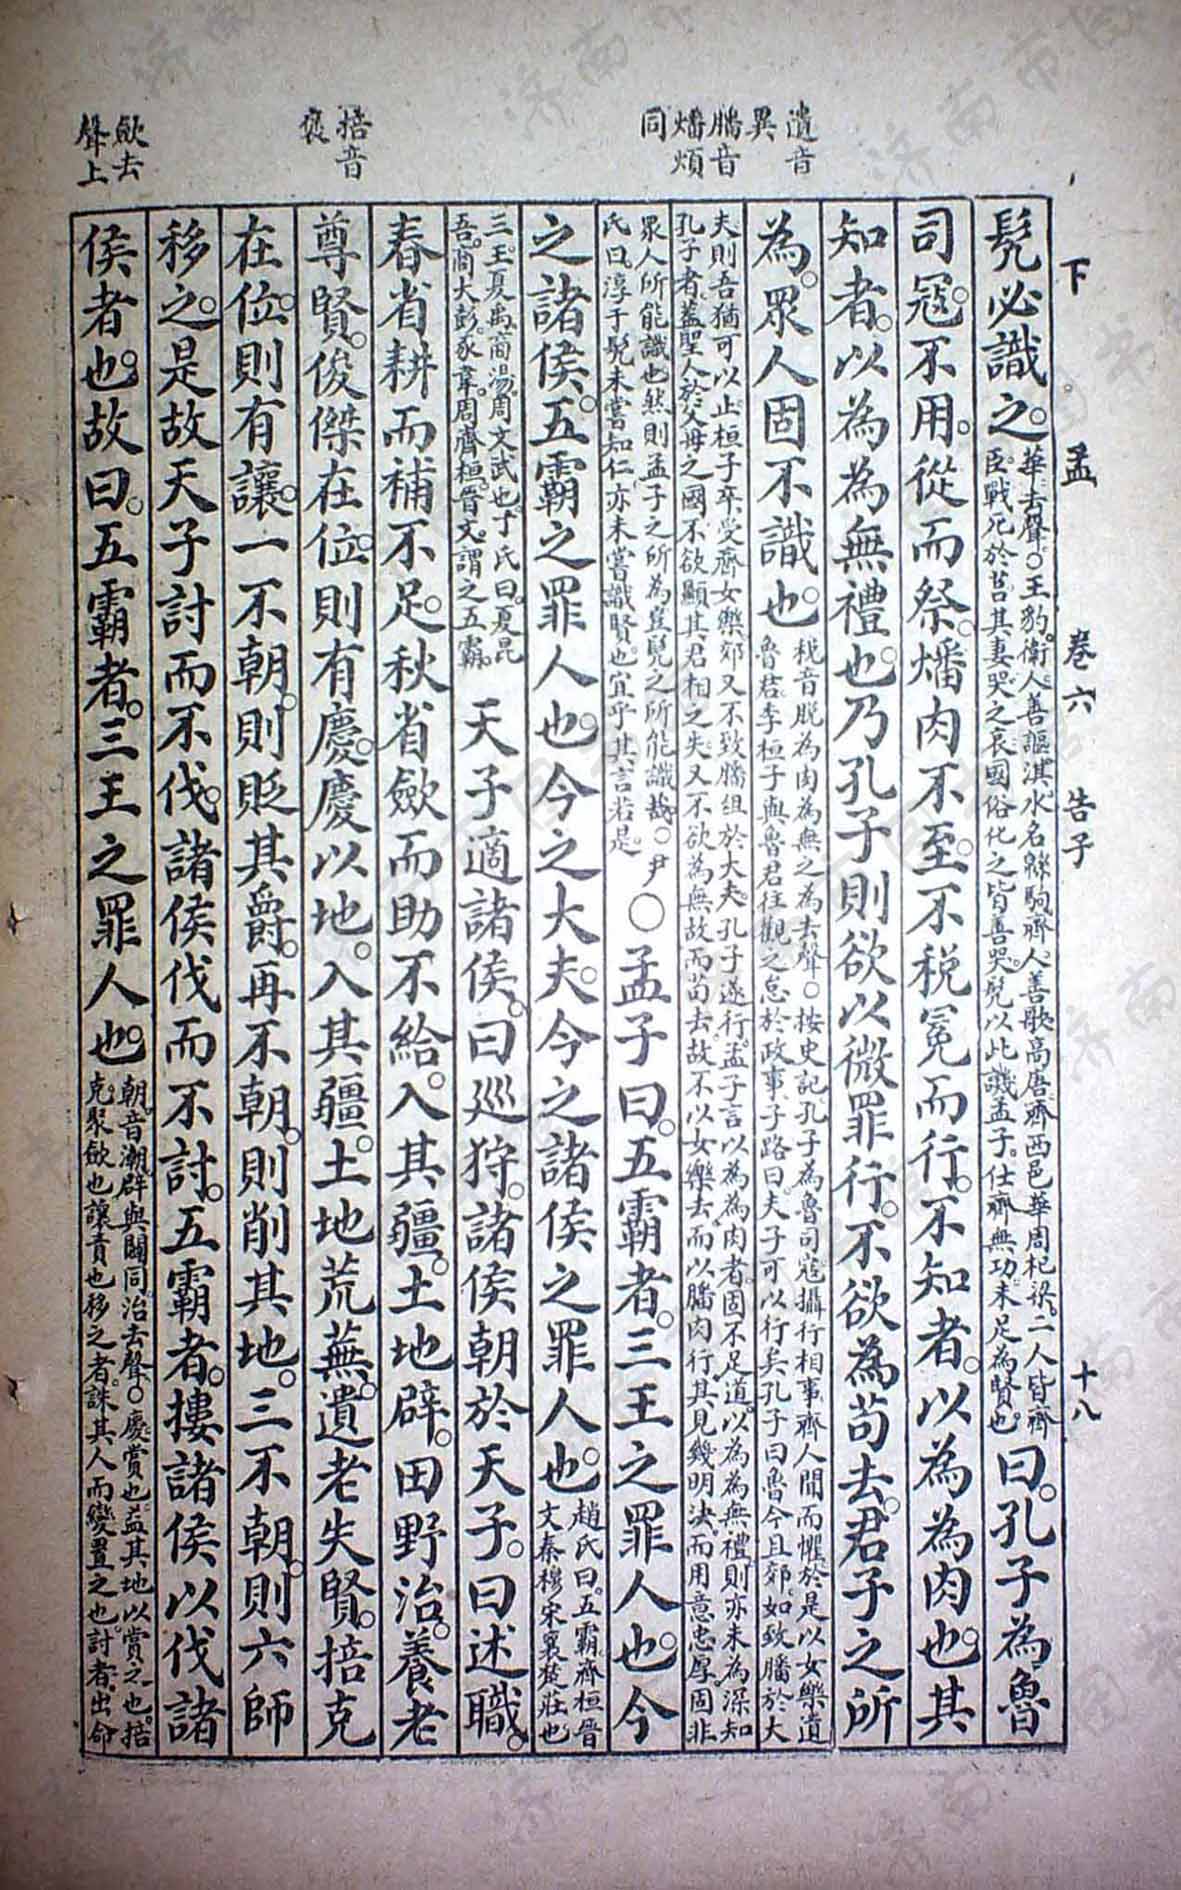 遺音異
膰音燔煩同
掊音裒
歛去聲上
下孟 卷六 告子 十八
髡必識之。華去聲。○王豹。衛人。善謳。淇。水名。緜駒。齊人。善歌。高唐。齊西邑。華周杞梁。二人皆齊臣。戰死於莒。其妻哭之哀。國俗化之皆善哭。髡以此譏孟子。仕齊無功。未足為賢也。曰。孔子為魯
司寇。不用。從而祭。燔肉不至。不稅冕而行。不知者。以為為肉也。其
知者。以為為無禮也。乃孔子則欲以微罪行。不欲為苟去。君子之所
為。眾人固不識也。稅音脫。為肉為無之為去聲。○按史記。孔子為魯司寇。攝行相事。齊人聞而懼。於是以女樂遺魯君。季桓子與魯君往觀之。怠於政事。子路曰。夫子可以行矣。孔子曰。魯今且郊。如致膰於大
夫。則吾猶可以止。桓子卒受齊女樂。郊又不致膰俎於大夫。孔子遂行。孟子言以為為肉者。固不足道。以為為無禮。則亦未為深知孔子者。蓋聖人於父母之國。不欲顯其君相之失。又不欲為無故而苟去。故不以女樂去。而以膰肉行。其見幾明決。而用意忠厚。固非
眾人所能識也。然則孟子之所為。豈髡之所能識哉。○尹氏曰。淳于髡未嘗知仁。亦未嘗識賢也。宜乎其言若是。○孟子曰。五霸者。三王之罪人也。今
之諸侯。五霸之罪人也。今之大夫。今之諸侯之罪人也。趙氏曰。五霸。齊桓晉文。秦穆宋襄楚莊也
三王。夏禹。商湯。周文武也。丁氏曰。夏昆吾。商大彭。豕韋。周齊桓。晉文。謂之五霸。天子適諸侯。曰巡狩。諸侯朝於天子。曰述職。
春省耕而補不足。秋省歛而助不給。入其疆。土地辟。田野治。養老
尊賢。俊傑在位。則有慶。慶以地。入其疆。土地荒蕪。遺老失賢。掊克
在位。則有讓。一不朝。則貶其爵。再不朝。則削其地。三不朝。則六師
移之。是故天子討而不伐。諸侯伐而不討。五霸者。摟諸侯以伐諸
侯者也。故曰。五霸者。三王之罪人也。朝音潮。辟與闢同。治去聲。○慶。賞也。益其地以賞之也。掊克。聚歛也。讓。責也。移之者。誅其人而變置之也。討者。出命